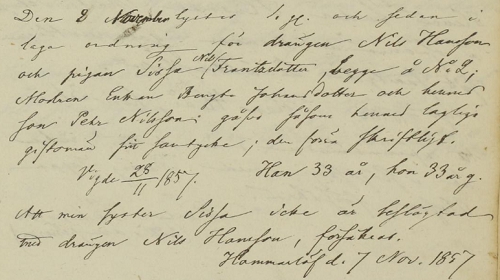 Den 8 November lystes 1 g. och sedan i
laga ordning för drängen Nils Hansson
och pigan Sissa Nils Frantzdotter, begge å No 2;
Modren Enkan Bengta Johnsdotter och hennes
son Pehr Nilsson; gåfvo såsom hennes laglige
giftomän sitt samtycke; den förra skriftligt.
Vigde 28/11 1857. Han 33 år, hon 33 år g.
Att min syster Sissa icke är beslägtad
med drängen Nils Hansson, försäkras.
Hammarlöf d. 7 Nov. 1857